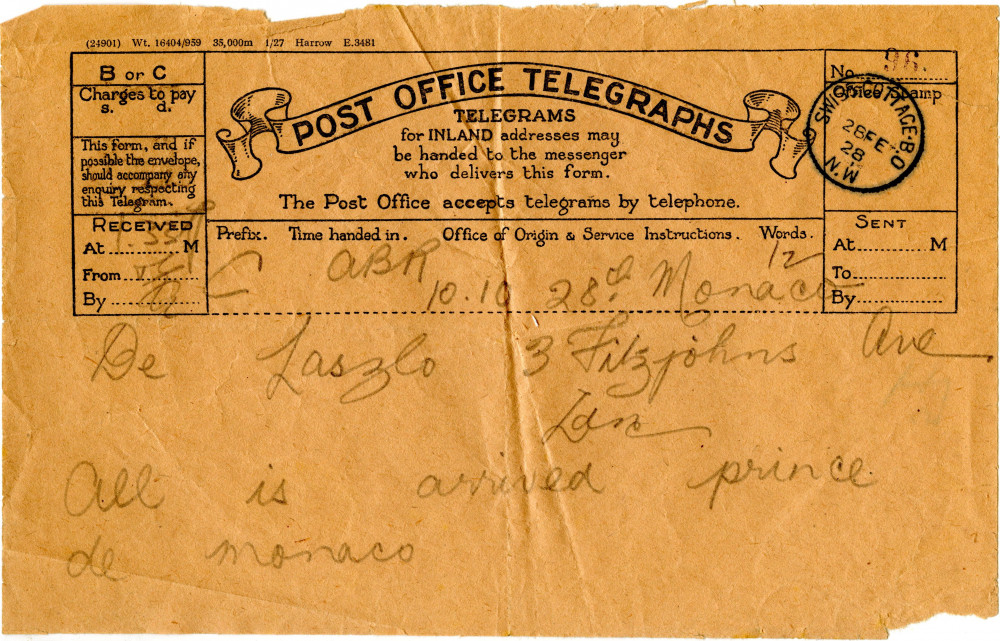 (24901) Wt. 16404/959 35,000m 1/27 Harrow E.3481
B or C
Charges to pay
s. d.
This form, and if
possible the envelope,
should accompany any
enquiry respecting
this Telegram.
RECEIVED
At M
From
By
POST OFFICE TELEGRAPHS
TELEGRAMS
for INLAND addresses may
be handed to the messenger
who delivers this form.
The Post Office accepts telegrams by telephone.
No. 96.
Office Stamp
SWISS COTTAGE·B.O
28 FE
28
N.W.
SENT
At M
To
By
Prefix. Time handed in. Office of Origin & Service Instructions. Words.
12
10.10 28th Monaco
De Laszlo 3 Fitzjohns Ave
Ldn
All is arrived prince
de monaco